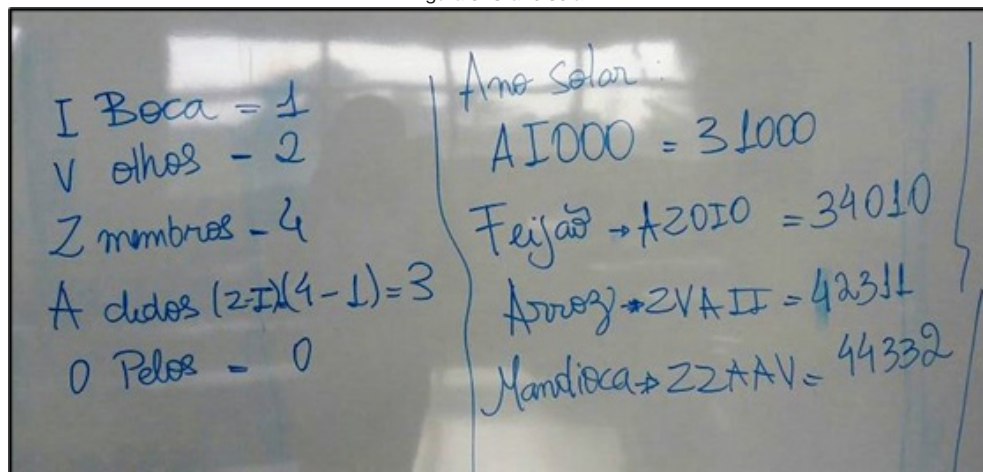 I Boca = 1
V olhos - 2
Z membros - 4
A dedos (Z-I)(4-1)=3
0 Pelos - 0
Ano Solar:
AI000 = 31000
Feijão → AZ0I0 = 34010
Arroz → ZVAII = 42311
Mandioca → ZZAAV = 44332